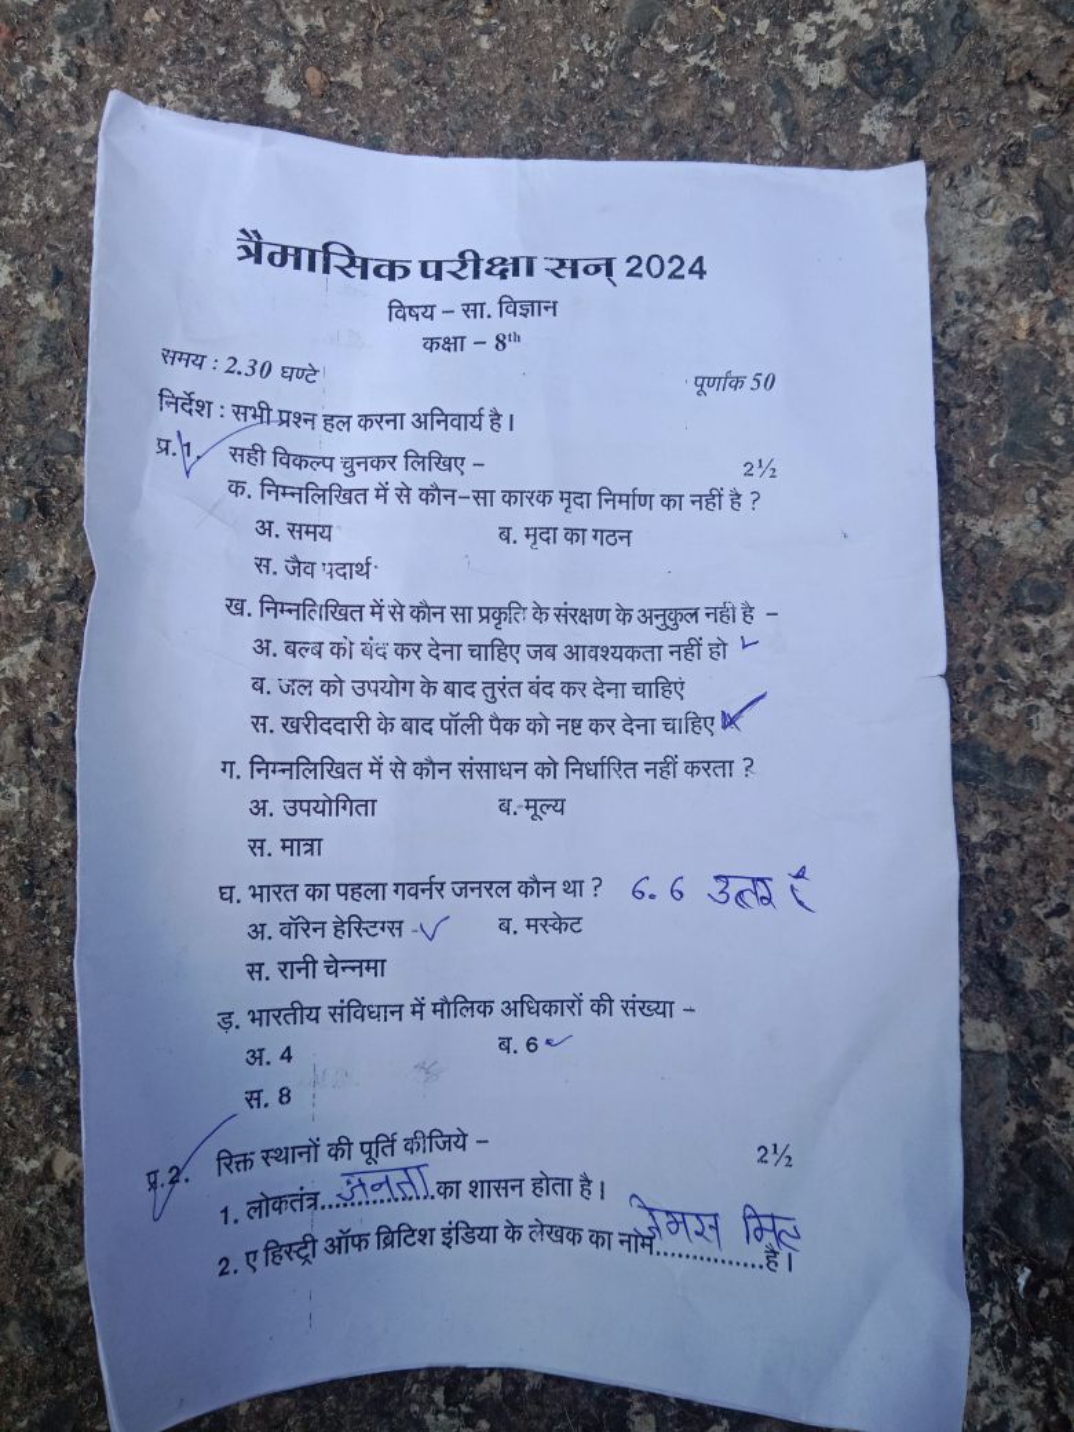 त्रैमासिक परीक्षा सन् 2024
विषय – सा. विज्ञान
कक्षा – 8th
समय : 2.30 घण्टे
पूर्णांक 50
निर्देश : सभी प्रश्न हल करना अनिवार्य है।
प्र.1. सही विकल्प चुनकर लिखिए – 2½
क. निम्नलिखित में से कौन-सा कारक मृदा निर्माण का नहीं है ?
अ. समय ब. मृदा का गठन
स. जैव पदार्थ
ख. निम्नलिखित में से कौन सा प्रकृति के संरक्षण के अनुकुल नही है –
अ. बल्ब को बंद कर देना चाहिए जब आवश्यकता नहीं हो
ब. जल को उपयोग के बाद तुरंत बंद कर देना चाहिएं
स. खरीददारी के बाद पॉली पैक को नष्ट कर देना चाहिए
ग. निम्नलिखित में से कौन संसाधन को निर्धारित नहीं करता ?
अ. उपयोगिता ब. मूल्य
स. मात्रा
घ. भारत का पहला गवर्नर जनरल कौन था ? 6. 6 उत्तर है
अ. वॉरेन हेस्टिग्स ब. मस्केट
स. रानी चेन्नमा
ड़. भारतीय संविधान में मौलिक अधिकारों की संख्या –
अ. 4 ब. 6
स. 8
प्र.2. रिक्त स्थानों की पूर्ति कीजिये – 2½
1. लोकतंत्र जनता का शासन होता है।
2. ए हिस्ट्री ऑफ ब्रिटिश इंडिया के लेखक का नाम जेमस मिल है।